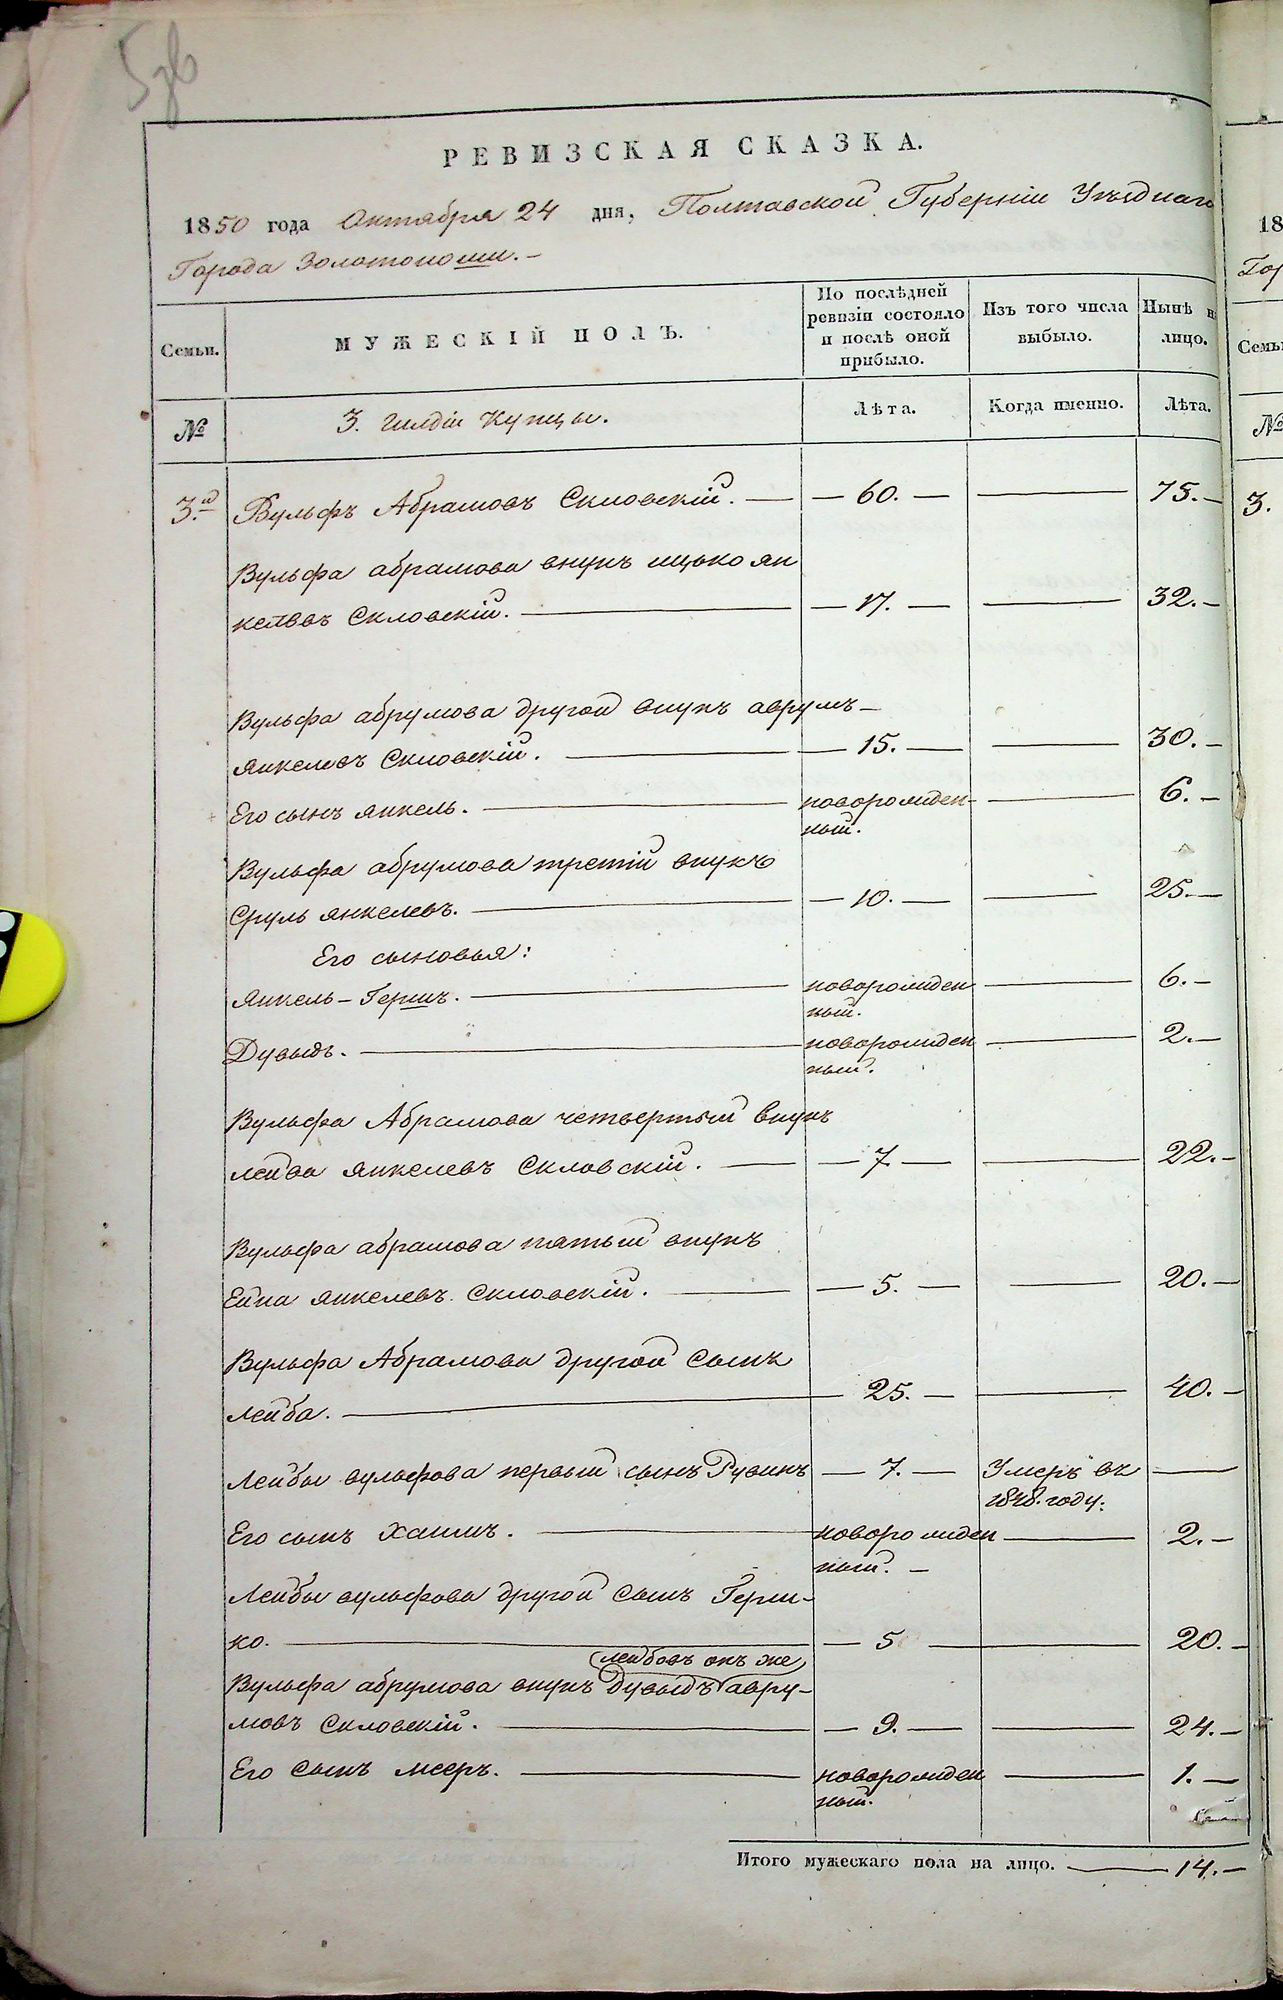 5зв
РЕВИЗСКАЯ СКАЗКА.
1850 года Октября 24 дня, Полтавской Губерніи Уѣзднаго
Города Золотоноши.
Семьи.
МУЖЕСКІЙ ПОЛЪ.
По послѣдней
ревизіи состояло
и послѣ оной
прибыло.
Изъ того числа
выбыло.
Нынѣ н
лицо.
№
3. гилдіи Купцы.
Лѣта.
Когда именно.
Лѣта.
3.й Вульфъ Абрамовъ Скловскій. — 60. — 75. —
Вульфа абрамова внукъ ицько ян
келевъ Скловскій. — 17. — 32. —
Вульфа абрумова другой внукъ аврумъ —
янкелевъ Скловскій. — 15. — 30. —
Его сынъ янкель. — новорожден- — 6. —
ный.
Вульфа абрумова третій внукъ
Сруль янкелевъ. — 10. — 25. —
Его сыновья:
янкель-Гершъ. — новорожден — 6. —
ный.
Дувыдъ. — новорожден — 2. —
ный.
Вульфа Абрамова четвертый внукъ
лейва янкелевъ Скловскій. — 7. — 22. —
Вульфа абрамова пятый внукъ
Ейна янкелевъ Скловскій. — 5. — 20. —
Вульфа Абрамова другой сынъ
лейба. — 25. — 40. —
Лейбы вульфова первый сынъ Рувинъ — 7. — Умеръ въ —
1848. году.
Его сынъ Хаимъ. — новорожден — 2. —
ный. —
Лейбы вульфова другой сынъ Герш-
ко. — 5 — 20. —
лейбовъ онъ же
Вульфа абрумова внукъ Дувыдъ авру-
мовъ Скловскій. — 9. — 24. —
Его сынъ мееръ. — новорожден — 1. —
ный.
Итого мужескаго пола на лицо. — 14. —
18
Гор
Семьи
№
3.